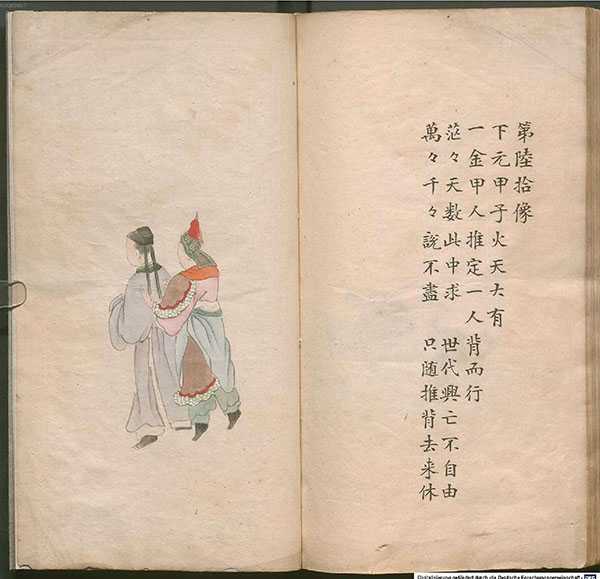 第陸拾像
下元甲子火天大有
一金甲人推定一人背而行
茫々天數此中求 世代興亡不自由
萬々千々說不盡 只随推背去来休
Digitalisierung gefördert durch die Deutsche Forschungsgemeinschaft